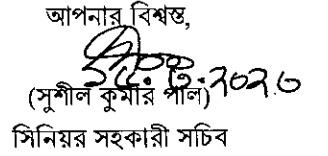 আপনার বিশ্বস্ত,
(সুশীল কুমার পাল)
সিনিয়র সহকারী সচিব